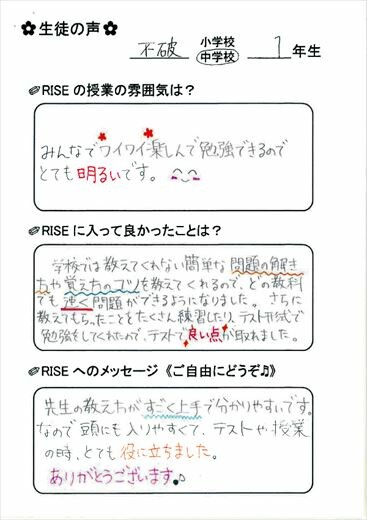 ✿生徒の声✿
不破 小学校 中学校 1年生
RISEの授業の雰囲気は？
みんなでワイワイ楽しんで勉強できるので
とても明るいです。
RISEに入って良かったことは？
学校では教えてくれない簡単な問題の解き
方や覚え方のコツを教えてくれるので、どの教科
でも速く問題ができるようになりました。さらに
教えてもらったことをたくさん練習したり、テスト形式で
勉強をしてくれたので、テストで良い点が取れました。
RISEへのメッセージ《ご自由にどうぞ♫》
先生の教え方がすごく上手で分かりやすいです。
なので頭にも入りやすくて、テストや授業
の時、とても役に立ちました。
ありがとうございます♪